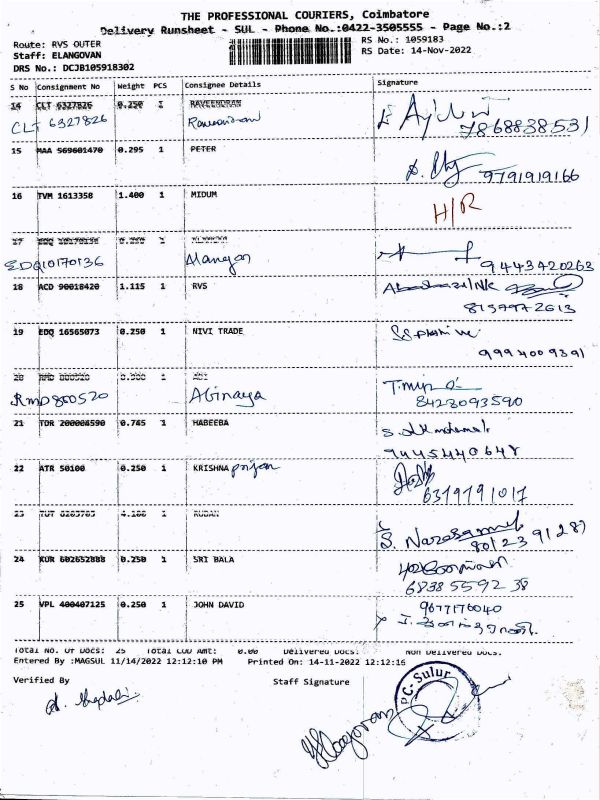 THE PROFESSIONAL COURIERS, Coimbatore
Delivery Runsheet - SUL - Phone No.:0422-3505555 - Page No.:2
Route: RVS OUTER
RS No.: 1059183
Staff: ELANGOVAN
RS Date: 14-Nov-2022
DRS No.: DCJB105918302
S No Consignment No Weight PCS Consignee Details Signature
14 CLT 6327826 0.250 1 RAVEENDRAN
CLT 6327826
7868838531
15 MAA 569601470 0.295 1 PETER
9791919166
16 TVM 1613358 1.400 1 MIDUM
H/R
17 EDQ 10170136 0.250 1
EDQ10170136 Alangar
9443420263
18 ACD 90018420 1.115 1 RVS
8157972613
19 EDQ 16565073 0.250 1 NIVI TRADE
9994009391
20 RMD 800520 0.300 1 ABI
RMD800520 Abinaya
8428093590
21 TDR 200004590 0.745 1 HABEEBA
9445440648
22 ATR 50100 0.250 1 KRISHNA priyan
6379791017
23 TUT 0203783 4.100 1 RUBAN
8012391287
24 KUR 602652888 0.250 1 SRI BALA
6838559238
25 VPL 400407125 0.250 1 JOHN DAVID
9677176040
Total No. Of Docs: 25 Total COD Amt: 0.00 Delivered Docs: Non Delivered Docs:
Entered By :MAGSUL 11/14/2022 12:12:10 PM Printed On: 14-11-2022 12:12:16
Verified By Staff Signature
PC-Sulur